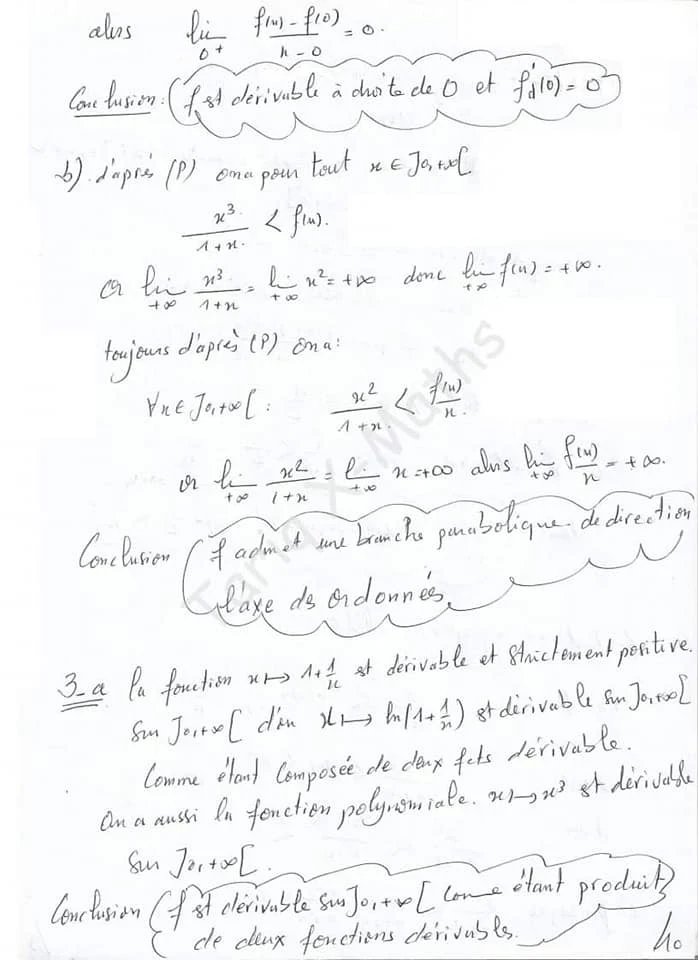 alors lim_{0+} (f(x) - f(0))/(x - 0) = 0.
Conclusion : f est dérivable à droite de 0 et f'd(0) = 0
b) d'après (P) on a pour tout x ∈ ]0,+∞[
x³/(1+x) < f(x).
or lim_{+∞} x³/(1+x) = lim_{+∞} x² = +∞ donc lim_{+∞} f(x) = +∞.
toujours d'après (P) on a :
∀x ∈ ]0,+∞[ : x²/(1+x) < f(x)/x
or lim_{+∞} x²/(1+x) = lim_{+∞} x = +∞ alors lim_{+∞} f(x)/x = +∞.
Conclusion f admet une branche parabolique de direction
l'axe des ordonnées
3-a la fonction x ↦ 1+1/x est dérivable et strictement positive.
sur ]0,+∞[ d'où x ↦ ln(1+1/x) est dérivable sur ]0,+∞[
Comme étant Composée de deux fcts dérivable.
On a aussi la fonction polynomiale. x ↦ x³ est dérivable
sur ]0,+∞[.
Conclusion f est dérivable sur ]0,+∞[ Come étant produit
de deux fonctions dérivables.
40
Tariq X-Maths